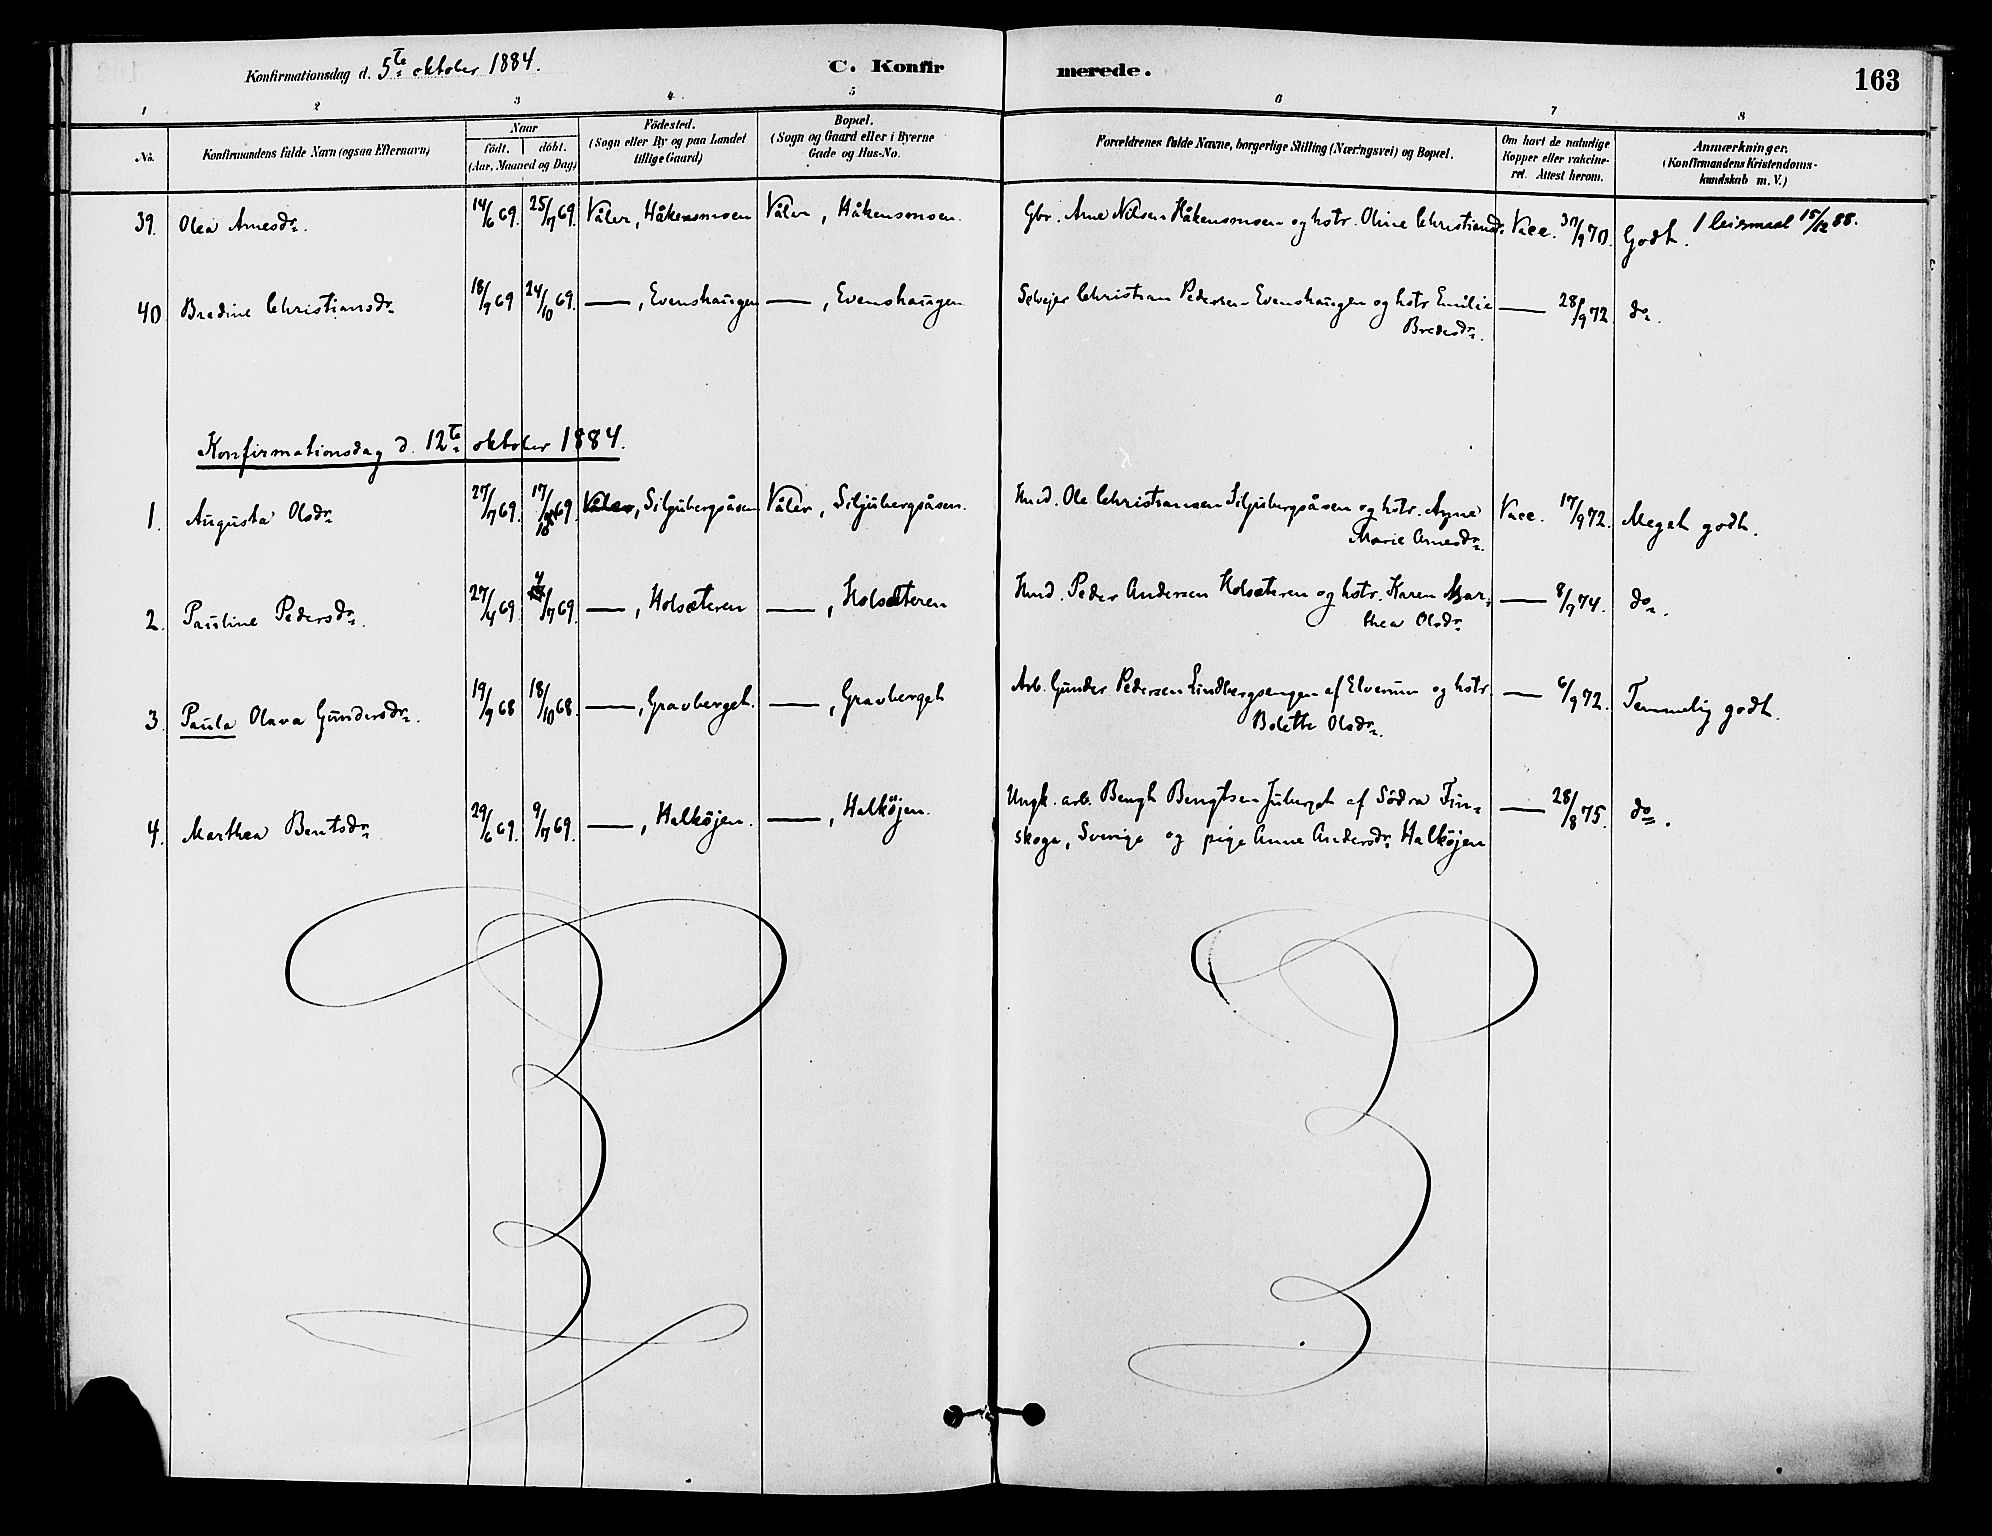 Konfirmationsdag d. 5te oktober 1884. C. Konfirmerede. 163
1 2 3 4 5 6 7 8
No. Konfirmandens fulde Navn (ogsaa Efternavn) Naar født. døbt. (Aar, Maaned og Dag) Fødested. (Sogn eller By og paa Landet tillige Gaard) Bopæl. (Sogn og Gaard eller i Byerne Gade og Hus-No. Forældrenes fulde Navne, borgerlige Stilling (Næringsvei) og Bopæl. Om havt de naturlige Kopper eller vakcineret. Attest herom. Anmærkninger. (Konfirmandens Kristendomskundskab m. V.)
39. Olea Arnesdr. 14/6 69. 25/7 69. Våler, Håkensmoen Våler, Håkensmoen. Gbr. Arne Nilsen Håkensmoen og hstr. Oline Christiansdr. Vacc. /9 70. Godt. 1 leiermaal 15/12 88.
40 Bredine Christiansdr. 18/9 69 24/10 69. —, Evenshaugen —, Evenshaugen Selvejer Christian Pedersen Evenshaugen og hstr. Emilie — 28/9 72 do.
Bredesdr.
Konfirmationsdag d. 12te oktober 1884.
1. Augusta Olsdr. 27/7 69. 17/10 69. Våler, Siljubergsåsen Våler, Siljubergsåsen. Husmd. Ole Christiansen Siljubergsåsen og hstr. Anne Vacc. 17/9 72. Meget godt.
Marie Arnesdr.
2. Pauline Pedersdr. 27/4 69. 4/7 69. —, Holsæteren —, Holsæteren Husmd. Peder Andersen Holsæteren og hstr. Karen Mar- — 8/7 74. do.
thea Olsdr.
3. Paula Olava Gundersdr. 19/9 68 18/10 68. —, Gravberget. —, Gravberget Arb. Gunder Pedersen Lindbergsengen af Elverum og hstr. — 6/9 72. Temmelig godt.
Bolette Olsdr.
4. Marthea Bentsdr. 29/6 69. 9/7 69. —, Halkøjen. —, Halkøjen. Ungk. arb. Bengt Bengtsen Juberget af Södra Fin- — 28/8 75. do.
skoga, Sverige og pige Anne Andersdr. Halkøjen